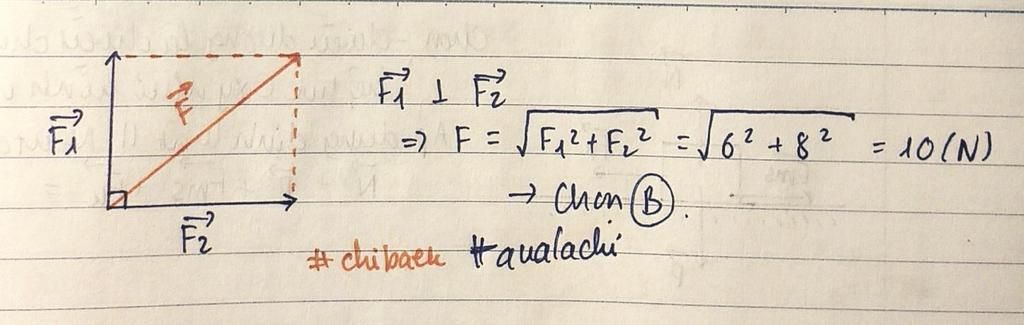 F₁⃗ ⊥ F₂⃗
F₁⃗
F⃗
⇒ F = √(F₁² + F₂²) = √(6² + 8²) = 10 (N)
→ Chọn B.
F₂⃗
#chibaek #aualachi